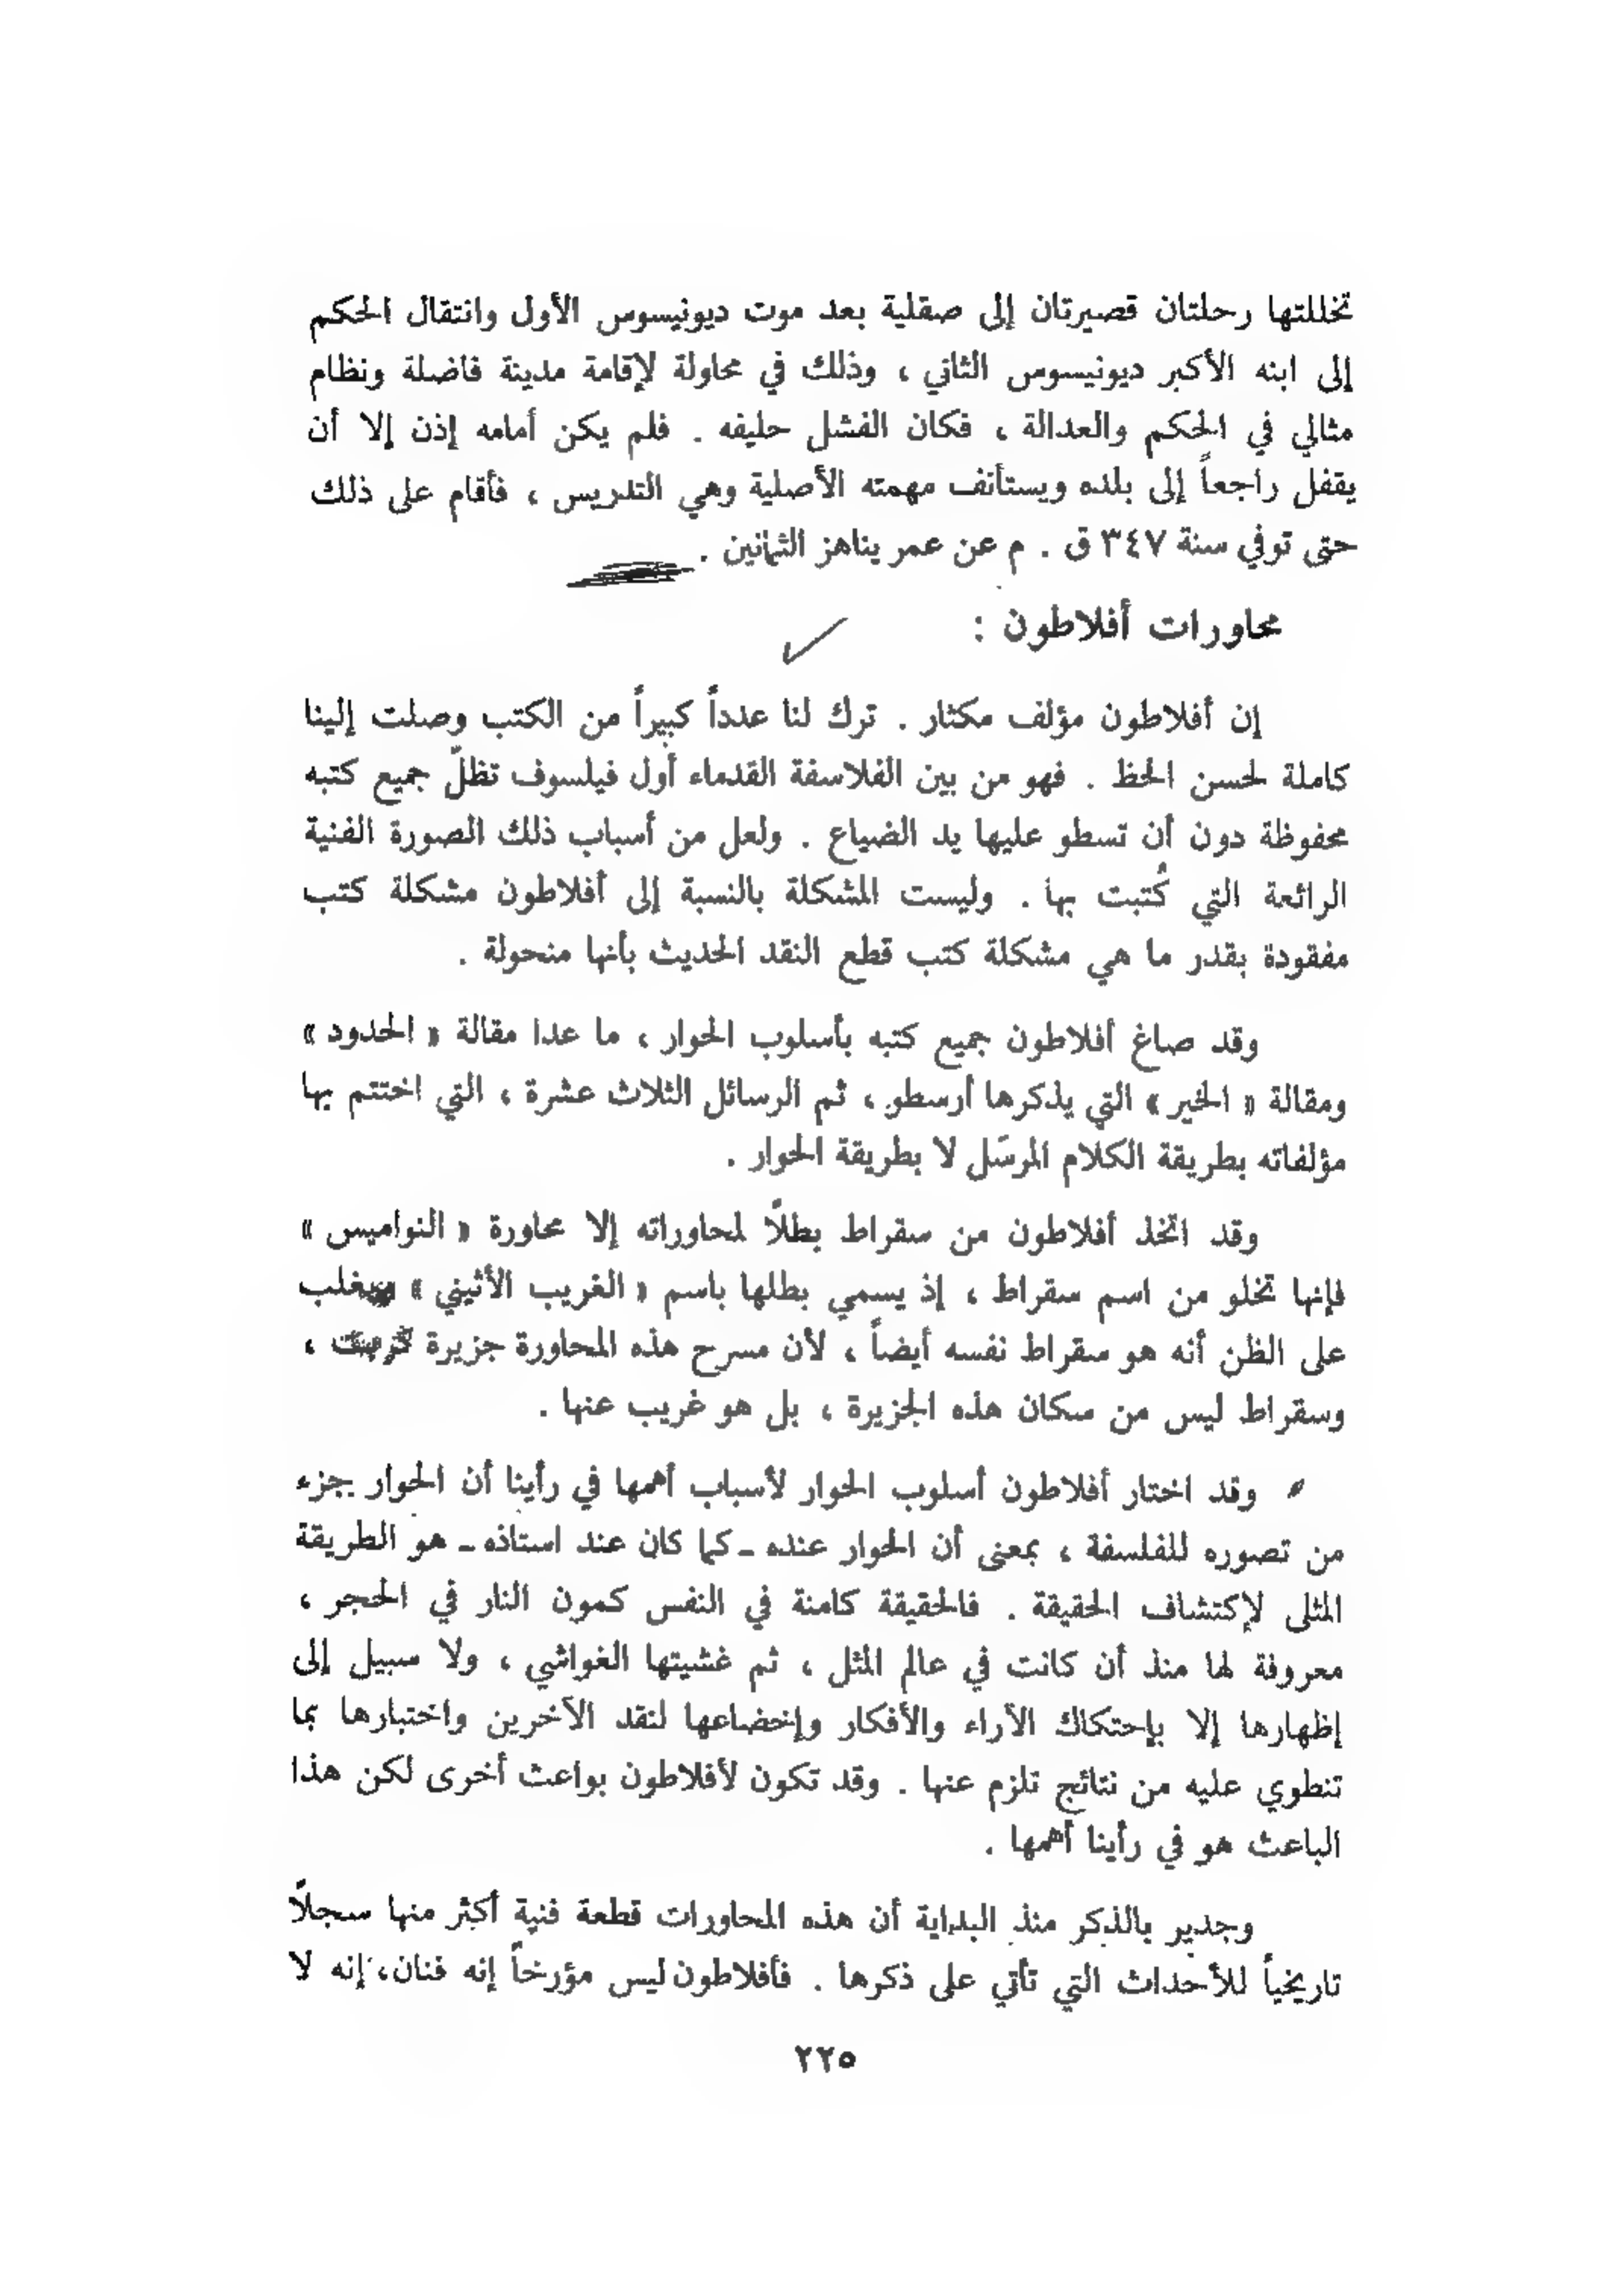 تخللتها رحلتان قصيرتان إلى صقلية بعد موت ديونيسوس الأول وانتقال الحكم
إلى ابنه الأكبر ديونيسوس الثاني ، وذلك في محاولة لإقامة مدينة فاضلة ونظام
مثالي في الحكم والعدالة ، فكان الفشل حليفه . فلم يكن أمامه إذن إلا أن
يقفل راجعاً إلى بلده ويستأنف مهمته الأصلية وهي التدريس ، فأقام على ذلك
حتى توفي سنة ٣٤٧ ق . م عن عمر يناهز الثمانين .
محاورات أفلاطون :
إن أفلاطون مؤلف مكثار . ترك لنا عدداً كبيراً من الكتب وصلت إلينا
كاملة لحسن الحظ . فهو من بين الفلاسفة القدماء أول فيلسوف تظلّ جميع كتبه
محفوظة دون أن تسطو عليها يد الضياع . ولعل من أسباب ذلك الصورة الفنية
الرائعة التي كُتبت بها . وليست المشكلة بالنسبة إلى أفلاطون مشكلة كتب
مفقودة بقدر ما هي مشكلة كتب قطع النقد الحديث بأنها منحولة .
وقد صاغ أفلاطون جميع كتبه بأسلوب الحوار ، ما عدا مقالة « الحدود »
ومقالة « الخير » التي يذكرها أرسطو ، ثم الرسائل الثلاث عشرة ، التي اختتم بها
مؤلفاته بطريقة الكلام المرسَل لا بطريقة الحوار .
وقد اتخذ أفلاطون من سقراط بطلًا لمحاوراته إلا محاورة « النواميس »
فإنها تخلو من اسم سقراط ، إذ يسمي بطلها باسم « الغريب الأثيني » ويغلب
على الظن أنه هو سقراط نفسه أيضاً ، لأن مسرح هذه المحاورة جزيرة كريت ،
وسقراط ليس من سكان هذه الجزيرة ، بل هو غريب عنها .
وقد اختار أفلاطون أسلوب الحوار لأسباب أهمها في رأينا أن الحوار جزء
من تصوره للفلسفة ، بمعنى أن الحوار عنده ـ كما كان عند استاذه ـ هو الطريقة
المثلى لإكتشاف الحقيقة . فالحقيقة كامنة في النفس كمون النار في الحجر ،
معروفة لها منذ أن كانت في عالم المثل ، ثم غشيتها الغواشي ، ولا سبيل إلى
إظهارها إلا بإحتكاك الآراء والأفكار وإخضاعها لنقد الآخرين واختبارها بما
تنطوي عليه من نتائج تلزم عنها . وقد تكون لأفلاطون بواعث أخرى لكن هذا
الباعث هو في رأينا أهمها .
وجدير بالذكر منذ البداية أن هذه المحاورات قطعة فنية أكثر منها سجلاً
تاريخياً للأحداث التي تأتي على ذكرها . فأفلاطون ليس مؤرخاً إنه فنان، إنه لا
٢٢٥